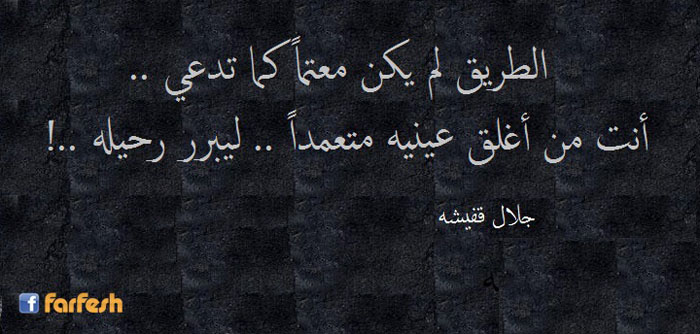 الطريق لم يكن معتماً كما تدعي ..
أنت من أغلق عينيه متعمداً .. ليبرر رحيله ..!
جلال قفيشه
f farfesh